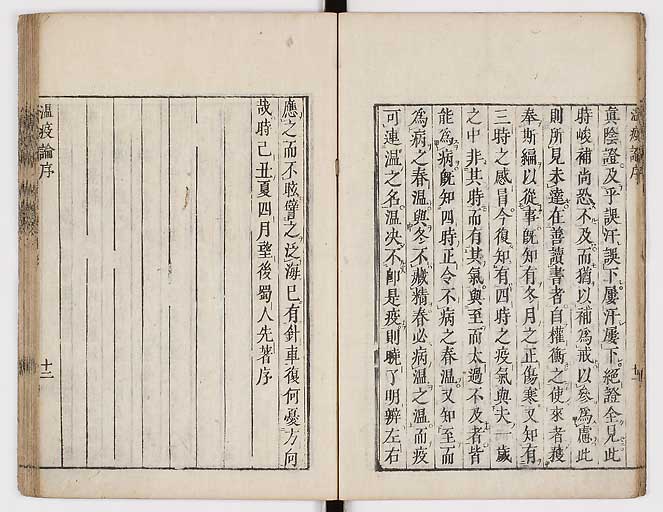 溫疫論序
眞陰證及乎誤汗誤下屢汗屢下絕證全見此
時峻補尚恐不及而猶以補爲戒以參爲慮此
則所見未達在善讀書者自權衡之使來者獲
奉斯編以從事旣知有冬月之正傷寒又知有
三時之感冒今復知有四時之疫氣與夫一歲
之中非其時而有其氣與至而太過不及者皆
能爲病旣知四時正令不病之春溫又知至而
爲病之春溫與冬不藏精春必病溫之溫而疫
可連溫之名溫決不卽是疫則曉了明辨左右
應之而不眩譬之泛海已有針車復何憂方向
哉時己丑夏四月望後蜀人先著序
溫疫論序
十二